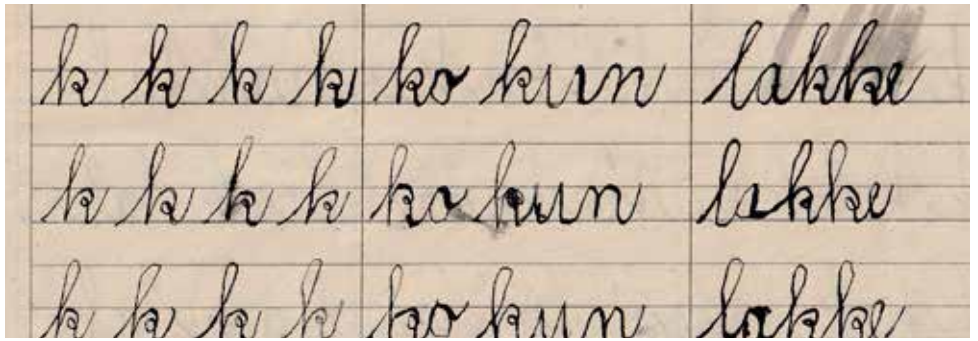 k k k k ko kun lakke
k k k k ko kun lakke
k k k k ko kun lakke